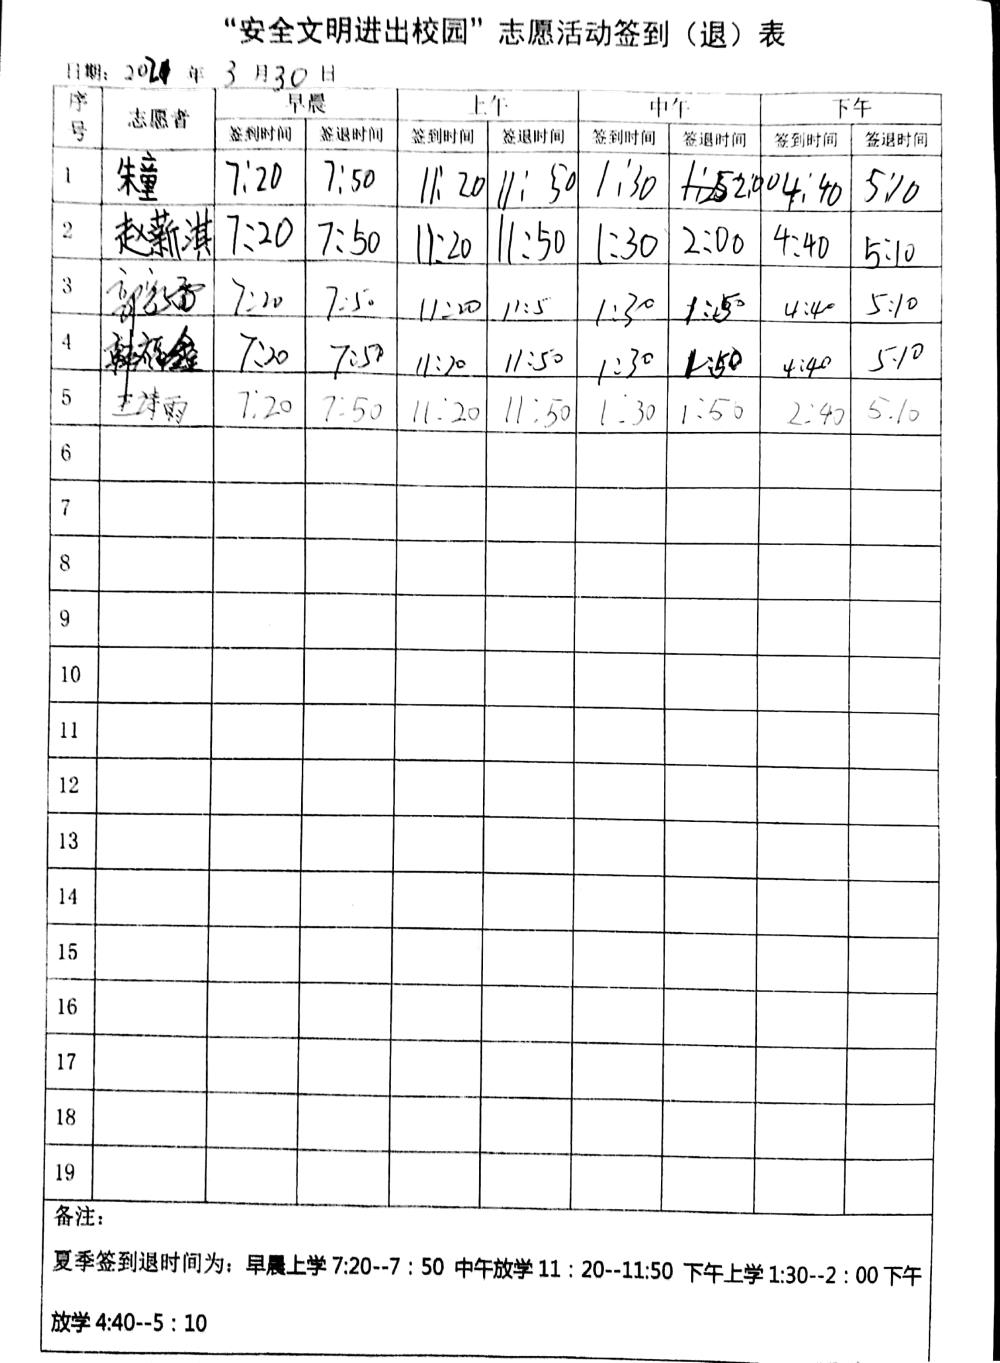 “安全文明进出校园”志愿活动签到（退）表
日期：2021 年 3 月 30 日
序号 志愿者 早晨 上午 中午 下午
签到时间 签退时间 签到时间 签退时间 签到时间 签退时间 签到时间 签退时间
1 朱童 7:20 7:50 11:20 11:50 1:30 2:00 4:40 5:10
2 赵薪淇 7:20 7:50 11:20 11:50 1:30 2:00 4:40 5:10
3 7:20 7:50 11:20 11:5 1:30 1:50 4:40 5:10
4 7:20 7:50 11:20 11:50 1:30 1:50 4:40 5:10
5 王诗雨 7:20 7:50 11:20 11:50 1:30 1:50 2:40 5:10
6
7
8
9
10
11
12
13
14
15
16
17
18
19
备注：
夏季签到退时间为：早晨上学 7:20--7：50 中午放学 11：20--11:50 下午上学 1:30--2：00 下午
放学 4:40--5：10